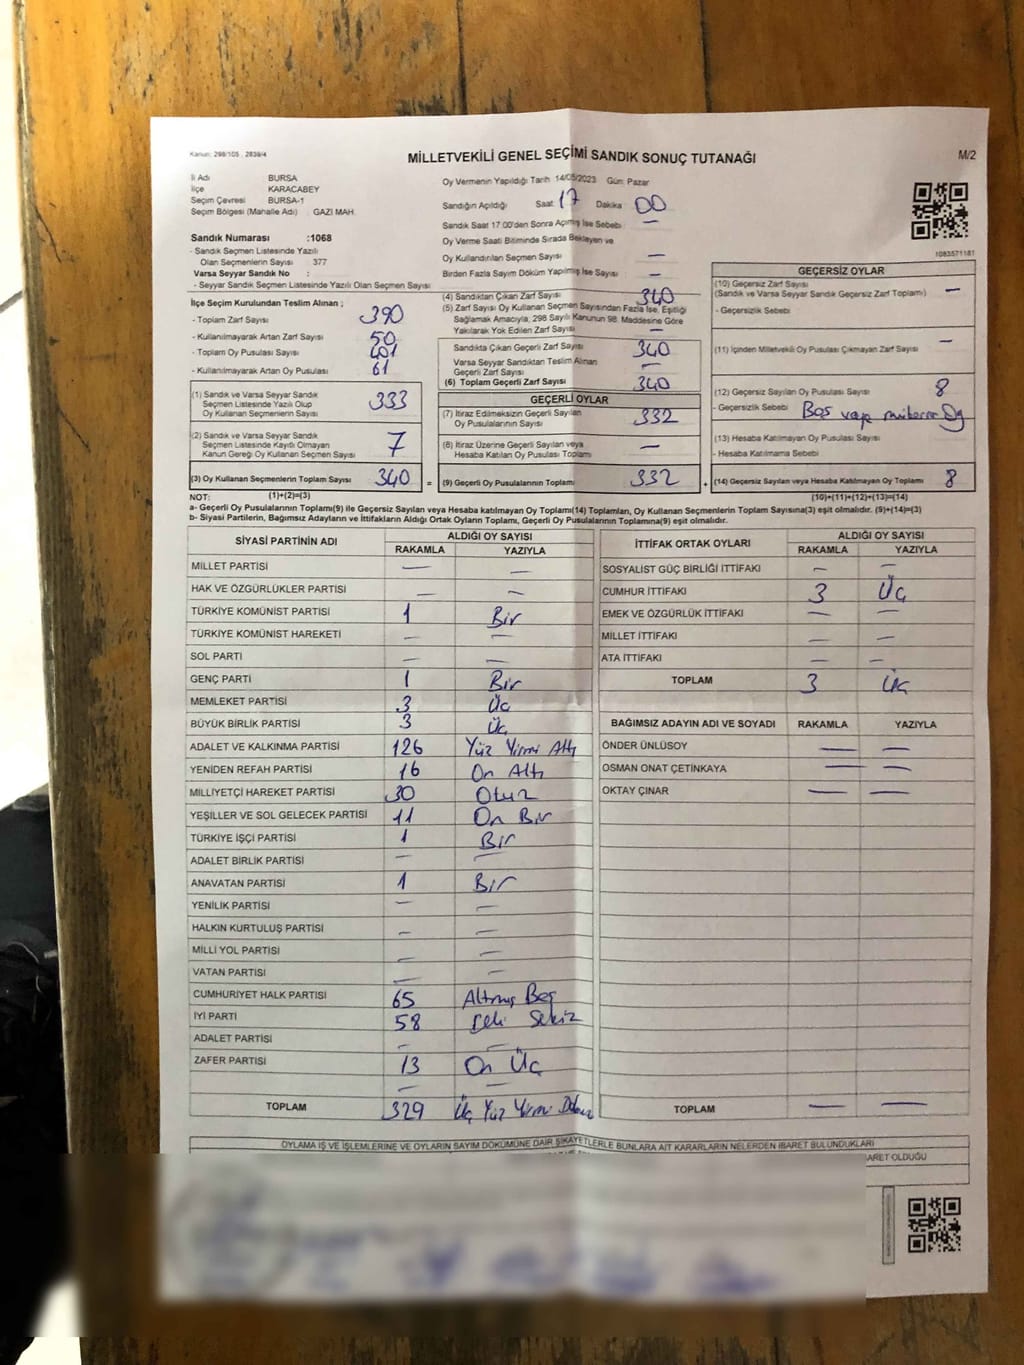 Kanun: 298/105 , 2839/4
MİLLETVEKİLİ GENEL SEÇİMİ SANDIK SONUÇ TUTANAĞI
M/2
İl Adı BURSA
İlçe KARACABEY
Seçim Çevresi BURSA-1
Seçim Bölgesi (Mahalle Adı) : GAZI MAH.
Oy Vermenin Yapıldığı Tarih 14/05/2023 Gün: Pazar
Sandığın Açıldığı Saat 17 Dakika 00
Sandık Saat 17:00'den Sonra Açılmış İse Sebebi —
Oy Verme Saati Bitiminde Sırada Bekleyen ve
Oy Kullandırılan Seçmen Sayısı —
Birden Fazla Sayım Döküm Yapılmış İse Sayısı —
Sandık Numarası :1068
- Sandık Seçmen Listesinde Yazılı
Olan Seçmenlerin Sayısı 377
Varsa Seyyar Sandık No :
- Seyyar Sandık Seçmen Listesinde Yazılı Olan Seçmen Sayısı
İlçe Seçim Kurulundan Teslim Alınan ;
- Toplam Zarf Sayısı 390
- Kullanılmayarak Artan Zarf Sayısı 50
- Toplam Oy Pusulası Sayısı 401
- Kullanılmayarak Artan Oy Pusulası 61
(1) Sandık ve Varsa Seyyar Sandık
Seçmen Listesinde Yazılı Olup
Oy Kullanan Seçmenlerin Sayısı 333
(2) Sandık ve Varsa Seyyar Sandık
Seçmen Listesinde Kayıtlı Olmayan
Kanun Gereği Oy Kullanan Seçmen Sayısı 7
(3) Oy Kullanan Seçmenlerin Toplam Sayısı 340 =
(1)+(2)=(3)
(4) Sandıktan Çıkan Zarf Sayısı 340
(5) Zarf Sayısı Oy Kullanan Seçmen Sayısından Fazla İse, Eşitliği
Sağlamak Amacıyla, 298 Sayılı Kanunun 98. Maddesine Göre
Yakılarak Yok Edilen Zarf Sayısı —
Sandıkta Çıkan Geçerli Zarf Sayısı 340
Varsa Seyyar Sandıktan Teslim Alınan
Geçerli Zarf Sayısı —
(6) Toplam Geçerli Zarf Sayısı 340
GEÇERLİ OYLAR
(7) İtiraz Edilmeksizin Geçerli Sayılan
Oy Pusulalarının Sayısı 332
(8) İtiraz Üzerine Geçerli Sayılan veya
Hesaba Katılan Oy Pusulası Toplamı —
(9) Geçerli Oy Pusulalarının Toplamı 332 +
1083571181
GEÇERSİZ OYLAR
(10) Geçersiz Zarf Sayısı —
(Sandık ve Varsa Seyyar Sandık Geçersiz Zarf Toplamı)
- Geçersizlik Sebebi
(11) İçinden Milletvekili Oy Pusulası Çıkmayan Zarf Sayısı —
(12) Geçersiz Sayılan Oy Pusulası Sayısı 8
- Geçersizlik Sebebi Boş veya
(13) Hesaba Katılmayan Oy Pusulası Sayısı
- Hesaba Katılmama Sebebi
(14) Geçersiz Sayılan veya Hesaba Katılmayan Oy Toplamı 8
(10)+(11)+(12)+(13)=(14)
NOT:
a- Geçerli Oy Pusulalarının Toplamı(9) ile Geçersiz Sayılan veya Hesaba Katılmayan Oy Toplamı(14) Toplamları, Oy Kullanan Seçmenlerin Toplam Sayısına(3) eşit olmalıdır. (9)+(14)=(3)
b- Siyasi Partilerin, Bağımsız Adayların ve İttifakların Aldığı Ortak Oyların Toplamı, Geçerli Oy Pusulalarının Toplamına(9) eşit olmalıdır.
SİYASİ PARTİNİN ADI ALDIĞI OY SAYISI
RAKAMLA YAZIYLA
MİLLET PARTİSİ — —
HAK VE ÖZGÜRLÜKLER PARTİSİ — —
TÜRKİYE KOMÜNİST PARTİSİ 1 Bir
TÜRKİYE KOMÜNİST HAREKETİ — —
SOL PARTİ — —
GENÇ PARTİ 1 Bir
MEMLEKET PARTİSİ 3 Üç
BÜYÜK BİRLİK PARTİSİ 3 Üç
ADALET VE KALKINMA PARTİSİ 126 Yüz Yirmi Altı
YENİDEN REFAH PARTİSİ 16 On Altı
MİLLİYETÇİ HAREKET PARTİSİ 30 Otuz
YEŞİLLER VE SOL GELECEK PARTİSİ 11 On Bir
TÜRKİYE İŞÇİ PARTİSİ 1 Bir
ADALET BİRLİK PARTİSİ — —
ANAVATAN PARTİSİ 1 Bir
YENİLİK PARTİSİ — —
HALKIN KURTULUŞ PARTİSİ — —
MİLLİ YOL PARTİSİ — —
VATAN PARTİSİ — —
CUMHURİYET HALK PARTİSİ 65 Altmış Beş
İYİ PARTİ 58 Elli Sekiz
ADALET PARTİSİ — —
ZAFER PARTİSİ 13 On Üç
— —
TOPLAM 329 Üç Yüz Yirmi Dokuz
İTTİFAK ORTAK OYLARI ALDIĞI OY SAYISI
RAKAMLA YAZIYLA
SOSYALİST GÜÇ BİRLİĞİ İTTİFAKI — —
CUMHUR İTTİFAKI 3 Üç
EMEK VE ÖZGÜRLÜK İTTİFAKI — —
MİLLET İTTİFAKI — —
ATA İTTİFAKI — —
TOPLAM 3 Üç
BAĞIMSIZ ADAYIN ADI VE SOYADI RAKAMLA YAZIYLA
ÖNDER ÜNLÜSOY — —
OSMAN ONAT ÇETİNKAYA — —
OKTAY ÇINAR — —
TOPLAM — —
OYLAMA İŞ VE İŞLEMLERİNE VE OYLARIN SAYIM DÖKÜMÜNE DAİR ŞİKAYETLERLE BUNLARA AİT KARARLARIN NELERDEN İBARET BULUNDUKLARI
ARET OLDUĞU